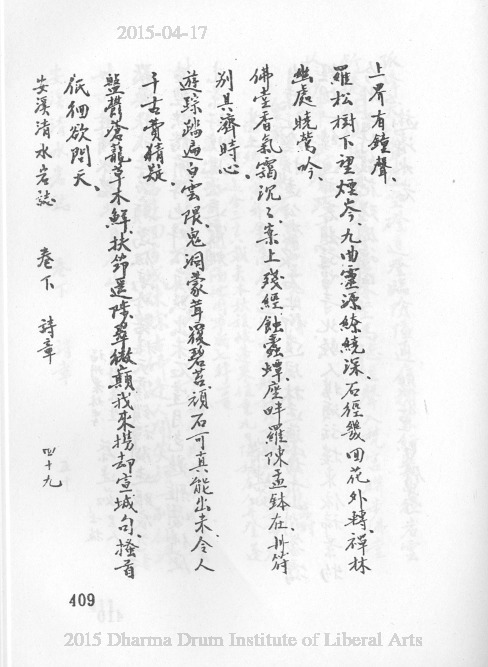 2015-04-17
上界有鐘聲、
羅松樹下望煙岑、九曲靈源繚繞深、石徑幾回花外轉、禪林
幽處晓鶯吟、
佛堂香氣靄沉々、案上殘經蝕蠹蟫、座畔羅陳盂鉢在、卅符
别具濟時心、
遊踪踏遍白雲隈、鬼洞蒙茸覆碧苔、頑石可真能出未、令人
千古費猜疑、
盤欝蒼蘢草木鮮、扶筇遥陟翠微顛、我來携却宣城句、搔首
低徊欲問天、
安溪清水岩誌 卷下 詩章 四十九
409
2015 Dharma Drum Institute of Liberal Arts